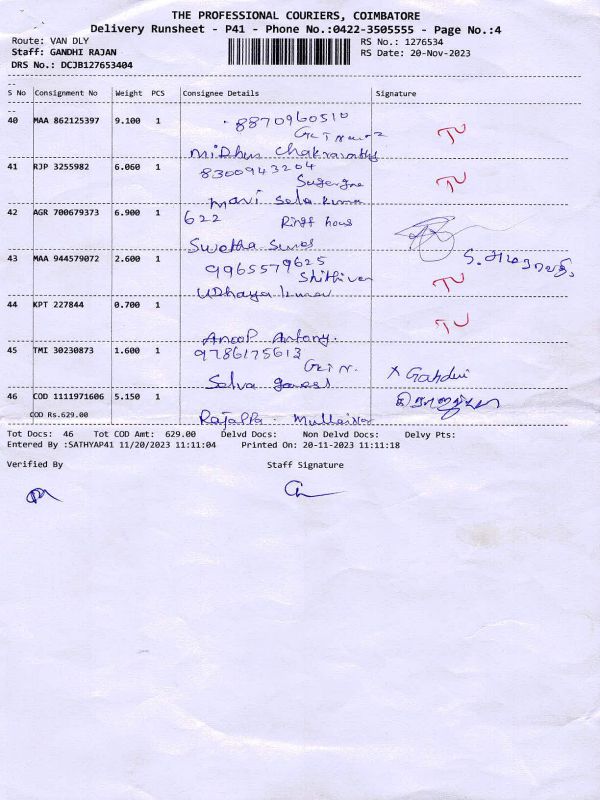 THE PROFESSIONAL COURIERS, COIMBATORE
Delivery Runsheet - P41 - Phone No.:0422-3505555 - Page No.:4
Route: VAN DLY
Staff: GANDHI RAJAN
DRS No.: DCJB127653404
RS No.: 1276534
RS Date: 20-Nov-2023
S No Consignment No Weight PCS Consignee Details Signature
8870960510
40 MAA 862125397 9.100 1
TU
Midhun Chakravarthy
41 RJP 3255982 6.060 1 8300943204
TU
Mani Sela Kumar
42 AGR 700679373 6.900 1 622
Swetha
43 MAA 944579072 2.600 1 9965579625
TU
Udhaya Kumar
44 KPT 227844 0.700 1
TU
Anoop Antony.
45 TMI 30230873 1.600 1 9786175613
Selva
X Gandhi
46 COD 1111971606 5.150 1
COD Rs.629.00
Rajappa -
Tot Docs: 46 Tot COD Amt: 629.00 Delvd Docs: Non Delvd Docs: Delvy Pts:
Entered By :SATHYAP41 11/20/2023 11:11:04 Printed On: 20-11-2023 11:11:18
Verified By Staff Signature